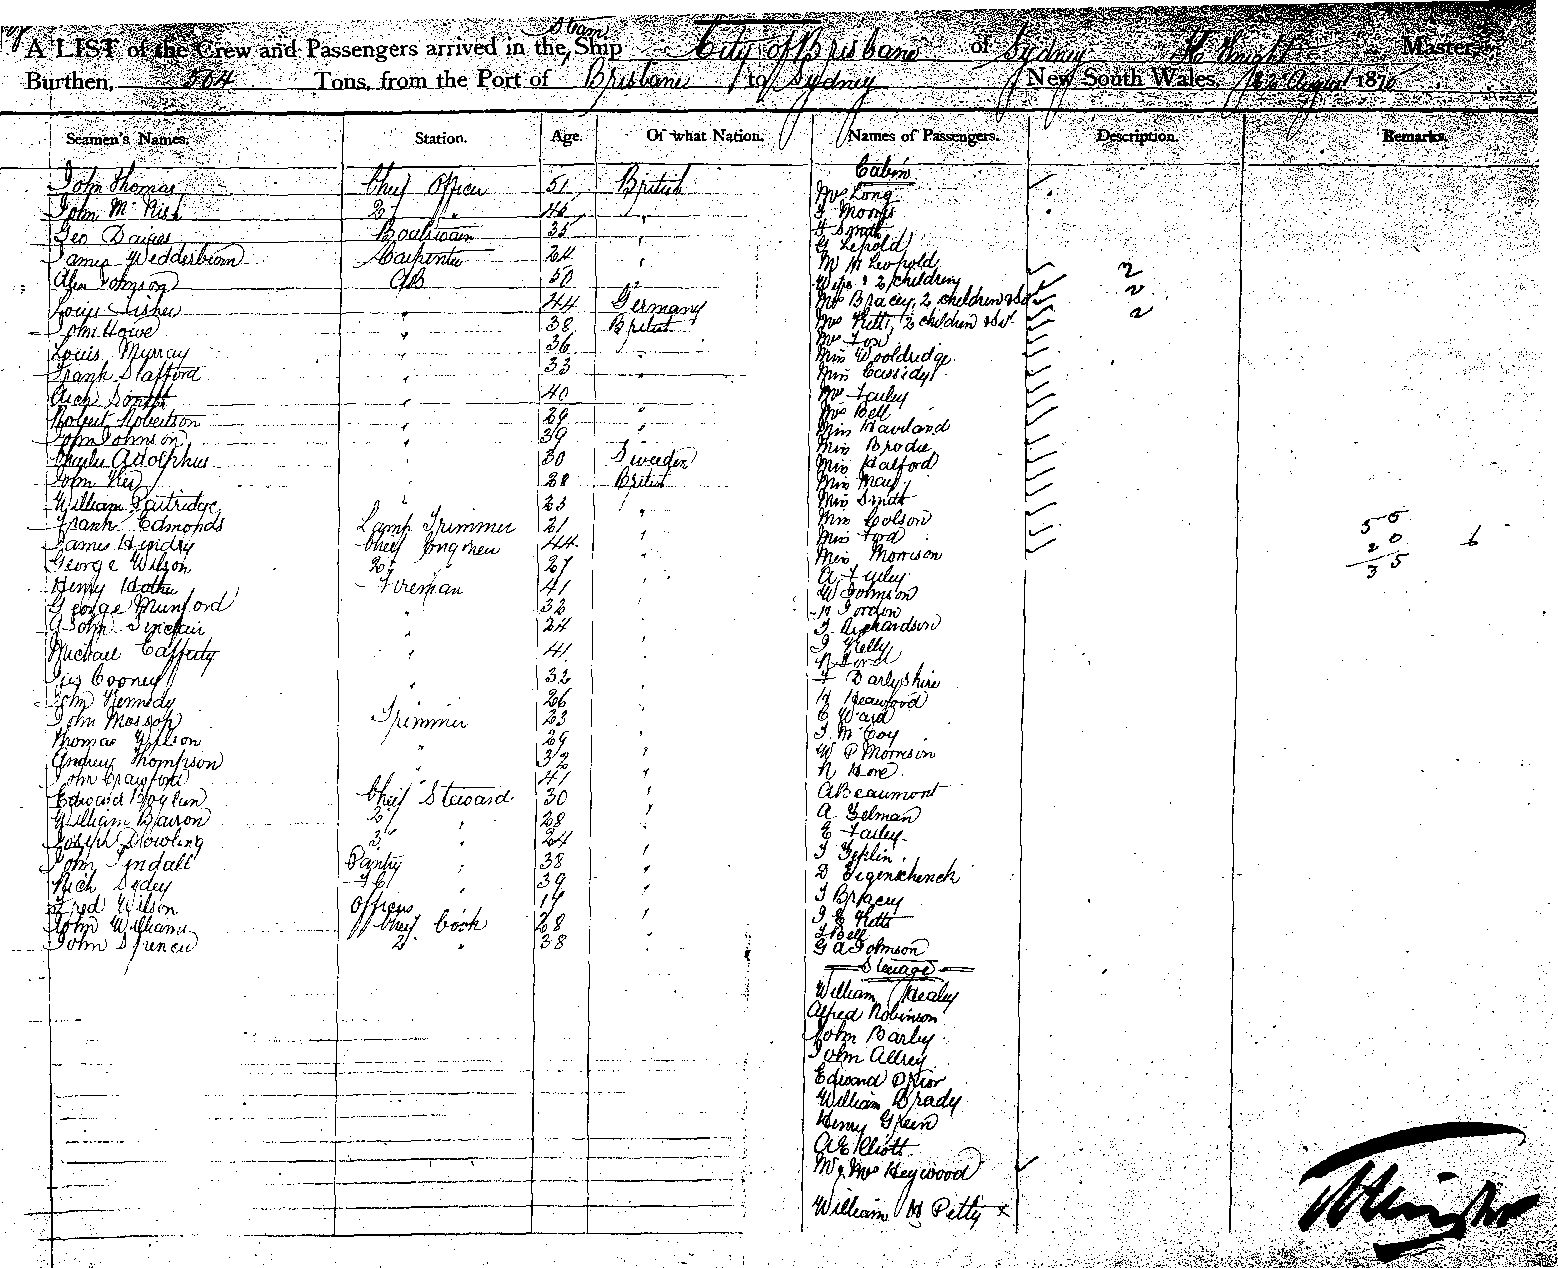 Steam
A LIST of the Crew and Passengers arrived in the Ship City of Brisbane of Sydney Knight Master,
Burthen, 504 Tons, from the Port of Brisbane to Sydney New South Wales, August 1876
Seamen's Names. Station. Age. Of what Nation. Names of Passengers. Description. Remarks.
Cabin
John Thomas Chief Officer 51 British
Mrs Long
John 2 " "
J Morris
Geo Davies Boatswain 35 "
Smith
G Lepold
James Wedderburn Carpenter 24 "
Mr H Leopold
Alex Johnson AB 50 "
Wife & 2 children 2
Louis Fisher " 44 Germany
Mrs Bracey, 2 children & Svt 2
John Howe " 38 British
Mrs Kett, 2 children & Svt 2
Louis Murray " 36 "
Mrs Fox
Miss Wooldridge
Frank Stafford " 33 "
Miss Cassidy
Arch Smith " 40
Mrs Farley
Robert Robertson " 29 "
Mrs Bell
John Johnson " 39 "
Miss Haviland
Charles Adolphus " 30 Sweden
Miss Brodie
Miss Halford
John 28 British
Miss May
William Partridge " 23 "
Miss Smith
Frank Edmonds Lamp Trimmer 21 "
Miss Colson 5 5
James Hendry Chief Engineer 44 "
Miss Ford 2 0 6
George Wilson 2 " 27 "
Miss Morrison 3 5
Henry Fireman 41 "
A Farley
W Johnson
George Munford " 32 "
Gordon
John Sinclair " 24 "
J Richardson
Michael Cafferty " 41 "
J Kelly
Jas Cooney " 32 "
F Darbyshire
John Kennedy " 26 "
H Heawood
John Mossop Trimmer 23 "
C Ward
Thomas Wilson " 29 "
J McCoy
Andrew Thompson " 32 "
W P Morrison
John Crawford " 41 "
R Hore
Edward Boylan Chief Steward 30 "
A Beaumont
William Barron 2 " 28 "
A Gelman
Joseph Dowling 3 " 24 "
E Farley
John Tindall Pantry " 38 "
J Zeplin
Rich " 39 "
D
Fred Wilson Officers 17 "
J Bracey
John Williams Chief Cook 28 "
J E Ketts
J Bell
John Spencer 2 " 38 "
G A Johnson
Steerage
William Healey
Alfred Robinson
John Barley
John
Edward Prior
William Brady
Henry Green
A Elliott
Mr & Mrs Heywood
William H Petty x